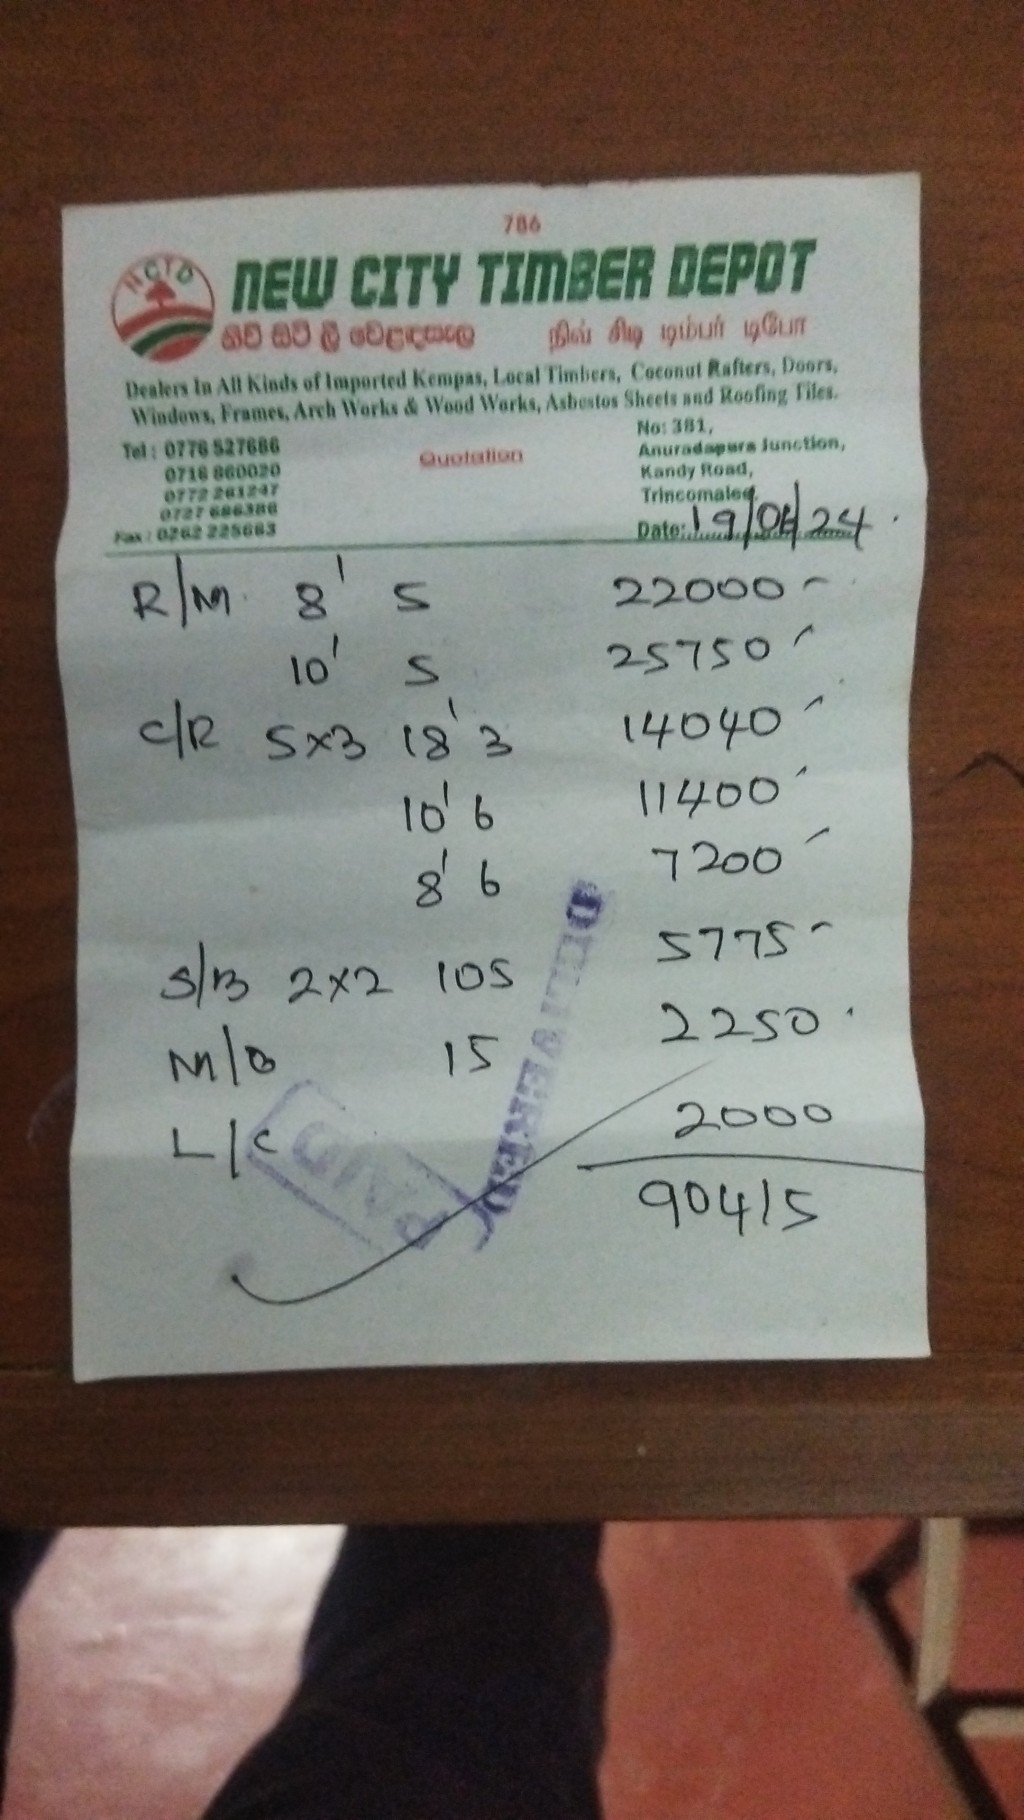 786
NCTD
NEW CITY TIMBER DEPOT
නිව් සිටි ලී වෙළඳසැල நிவ் சிடி டிம்பர் டிபோ
Dealers In All Kinds of Imported Kempas, Local Timbers, Coconut Rafters, Doors,
Windows, Frames, Arch Works & Wood Works, Asbestos Sheets and Roofing Tiles.
Tel : 0776 527686
0716 860020
0772 261247
0727 686386
Fax : 0262 225663
Quotation
No: 381,
Anuradapura Junction,
Kandy Road,
Trincomalee.
Date: 19/06/24
R/M 8' 5 22000
10' 5 25750
C/R 5x3 18' 3 14040
10' 6 11400
8' 6 7200
S/B 2x2 105 5775
M/B 15 2250
L/C 2000
90415
DELIVERED
PAID